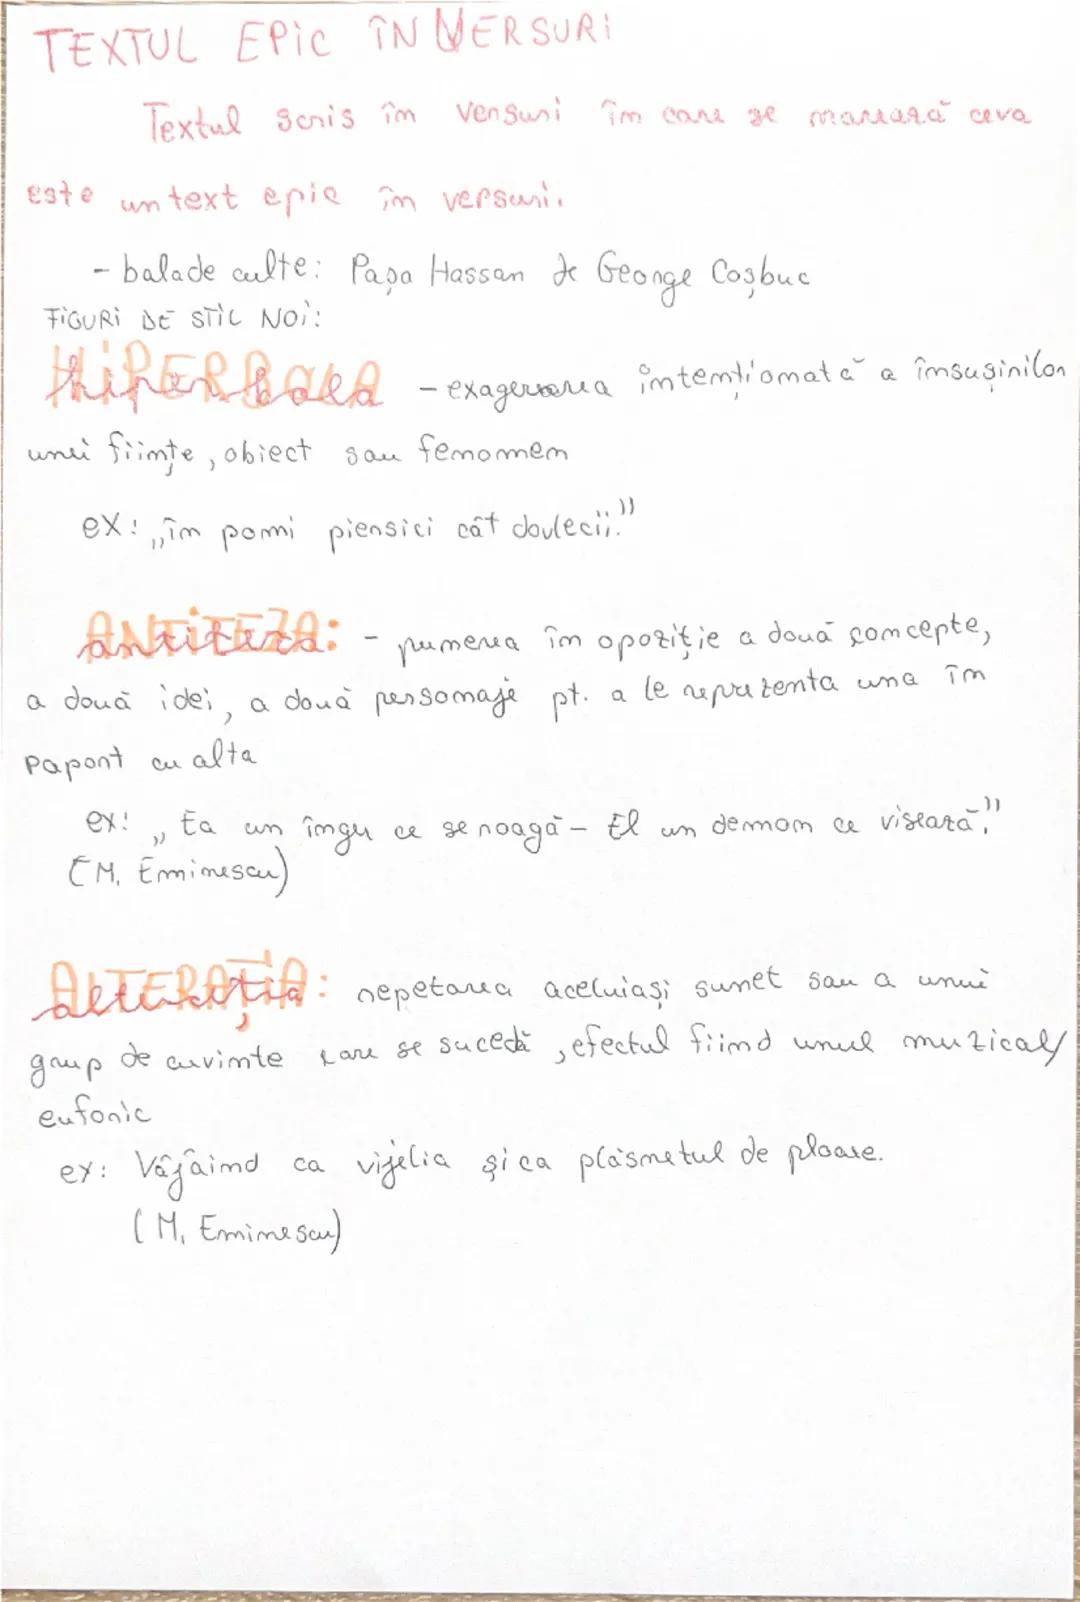 TEXTUL EPIC ÎN VERSURI
Textul scris în versuri în care se narează ceva
este un text epic în versuri.
- balade culte: Pașa Hassan de George Coșbuc
FIGURI DE STIL NOI:
HIPERBOLA - exagerarea intenționată a însușirilor
unei ființe, obiect sau fenomen
ex: „în pomi piersici cât dovlecii."
ANTITEZA: - punerea în opoziție a două concepte,
a două idei, a două personaje pt. a le reprezenta una în
raport cu alta
ex: „Ea un înger ce se roagă - El un demon ce visează."
(M. Eminescu)
ALTERAȚIA: repetarea aceluiași sunet sau a unui
grup de cuvinte care se sucedă, efectul fiind unul muzical/
eufonic
ex: Vâjâind ca vijelia și ca plesnetul de ploaie.
(M. Eminescu)